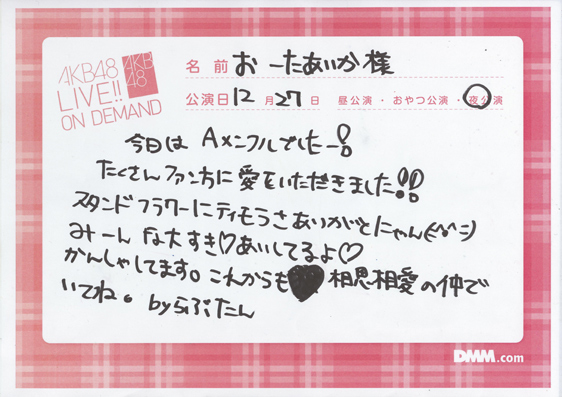 AKB48
LIVE!!
ON DEMAND
AKB
48
名 前 おーたあいか様
公演日 12 月 27 日 昼公演 ・ おやつ公演 ・ 夜公演
今日は Aメンフルでしたー!
たくさんファン方に愛をいただきました!!
スタンドフラワーに
ありがとにゃん
みーんな大すき♡あいしてるよ♡
かんしゃしてます。これからも♥相思相愛の仲で
いてね。byらぶたん
DMM.com